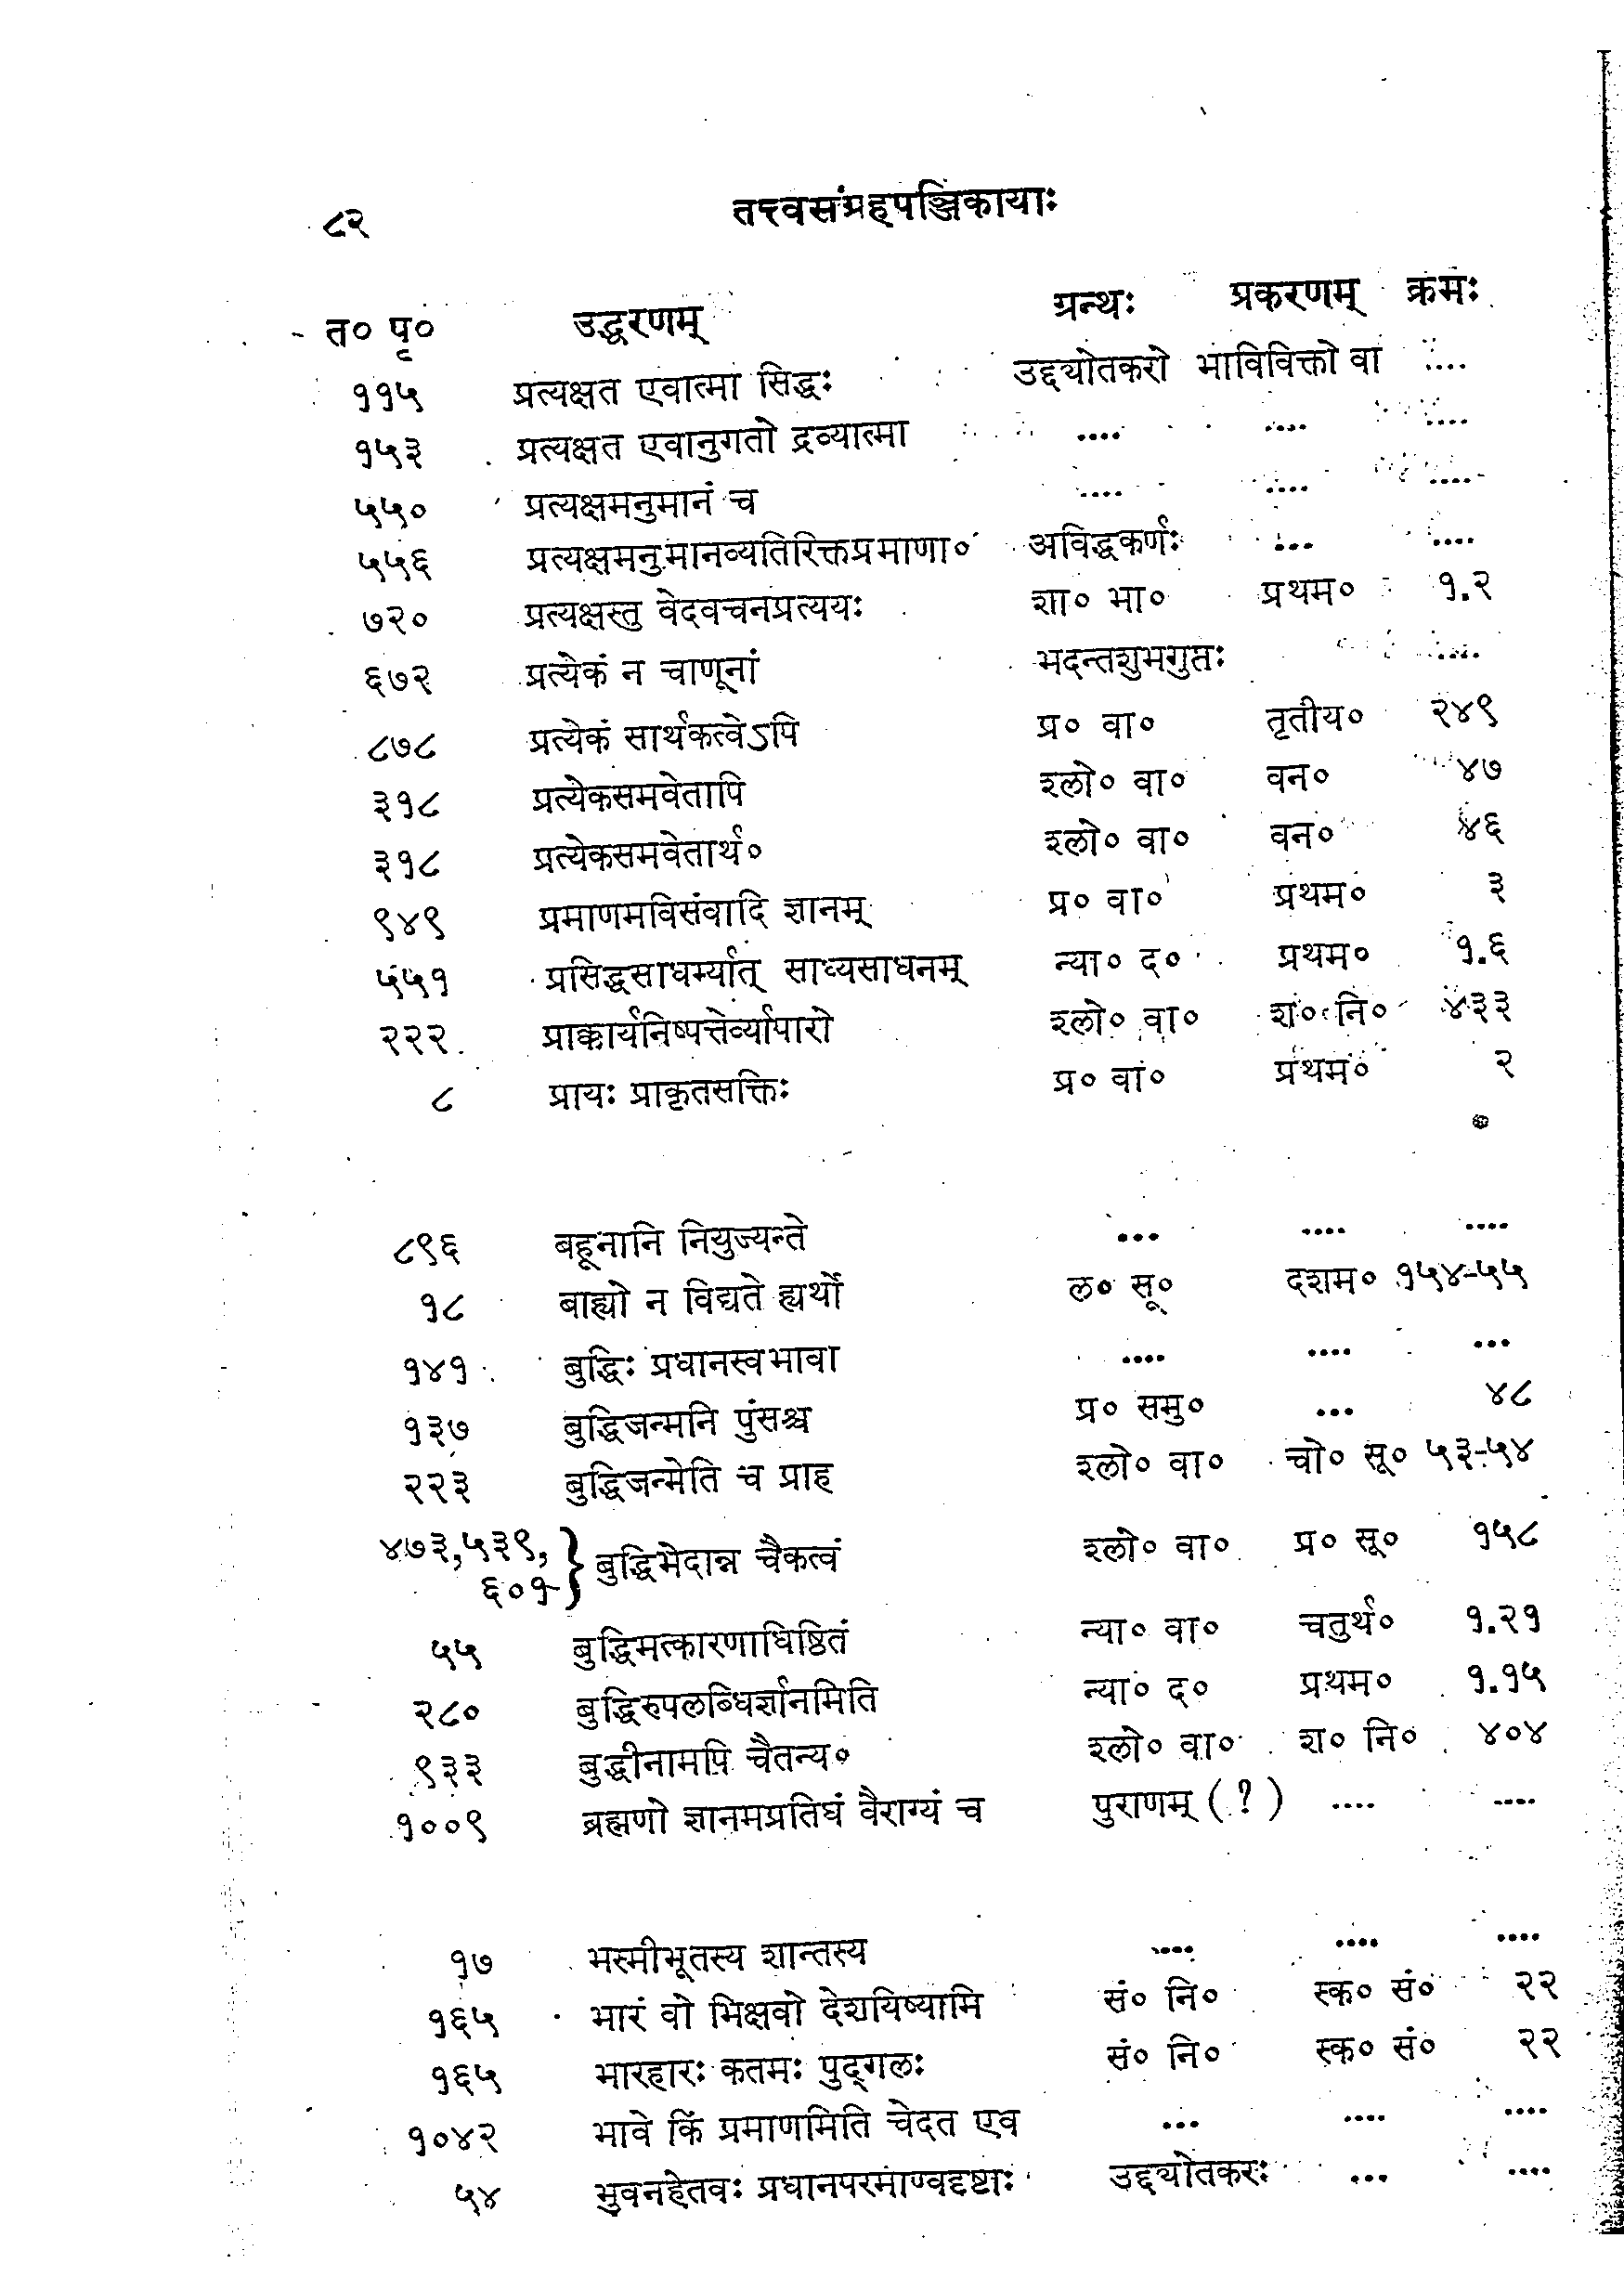 ८२ तत्त्वसंग्रहपञ्जिकायाः
त० पृ० उद्धरणम् ग्रन्थः प्रकरणम् क्रमः
११५ प्रत्यक्षत एवात्मा सिद्धः उद्द्योतकरो भाविविक्तो वा ....
१५३ प्रत्यक्षत एवानुगतो द्रव्यात्मा .... .... ....
५५० प्रत्यक्षमनुमानं च .... .... ....
५५६ प्रत्यक्षमनुमानव्यतिरिक्तप्रमाणा० अविद्धकर्णः ... ....
७२० प्रत्यक्षस्तु वेदवचनप्रत्ययः शा० भा० प्रथम० १.२
६७२ प्रत्येकं न चाणूनां भदन्तशुभगुप्तः ....
८७८ प्रत्येकं सार्थकत्वेऽपि प्र० वा० तृतीय० २४९
३१८ प्रत्येकसमवेतापि श्लो० वा० वन० ४७
३१८ प्रत्येकसमवेतार्थ० श्लो० वा० वन० ४६
९४९ प्रमाणमविसंवादि ज्ञानम् प्र० वा० प्रथम० ३
५५१ प्रसिद्धसाधर्म्यात् साध्यसाधनम् न्या० द० प्रथम० १.६
२२२ प्राक्कार्यनिष्पत्तेर्व्यापारो श्लो० वा० श० नि० ४३३
८ प्रायः प्राकृतसक्तिः प्र० वा० प्रथम० २
८९६ बहूनानि नियुज्यन्ते ... .... ....
१८ बाह्यो न विद्यते ह्यर्थो ल० सू० दशम० १५४-५५
१४१ बुद्धिः प्रधानस्वभावा .... .... ...
१३७ बुद्धिजन्मनि पुंसश्च प्र० समु० ... ४८
२२३ बुद्धिजन्मेति च प्राह श्लो० वा० चो० सू० ५३-५४
४७३,५३९,
६०१ } बुद्धिभेदान्न चैकत्वं श्लो० वा० प्र० सू० १५८
५५ बुद्धिमत्कारणाधिष्ठितं न्या० वा० चतुर्थ० १.२१
२८० बुद्धिरुपलब्धिर्ज्ञानमिति न्या० द० प्रथम० १.१५
९३३ बुद्धीनामपि चैतन्य० श्लो० वा० श० नि० ४०४
१००९ ब्रह्मणो ज्ञानमप्रतिघं वैराग्यं च पुराणम् (?) .... ....
१७ भस्मीभूतस्य शान्तस्य .... .... ....
१६५ भारं वो भिक्षवो देशयिष्यामि सं० नि० स्क० सं० २२
१६५ भारहारः कतमः पुद्गलः सं० नि० स्क० सं० २२
१०४२ भावे किं प्रमाणमिति चेदत एव ... .... ....
५४ भुवनहेतवः प्रधानपरमाण्वदृष्टाः उद्द्योतकरः ... ....